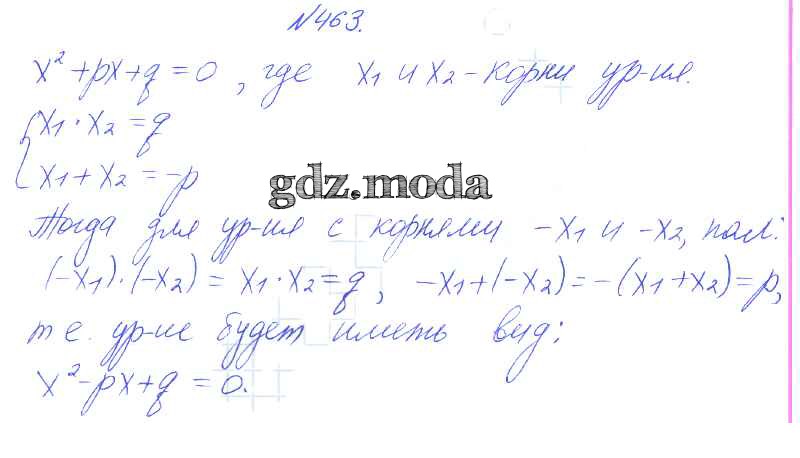 №463.
x² + px + q = 0, где x₁ и x₂ - корни ур-ия.
x₁ · x₂ = q
x₁ + x₂ = -p
gdz.moda
Тогда для ур-ия с корнями -x₁ и -x₂, пол:
(-x₁) · (-x₂) = x₁ · x₂ = q, -x₁ + (-x₂) = -(x₁ + x₂) = p,
т е. ур-ие будет иметь вид:
x² - px + q = 0.